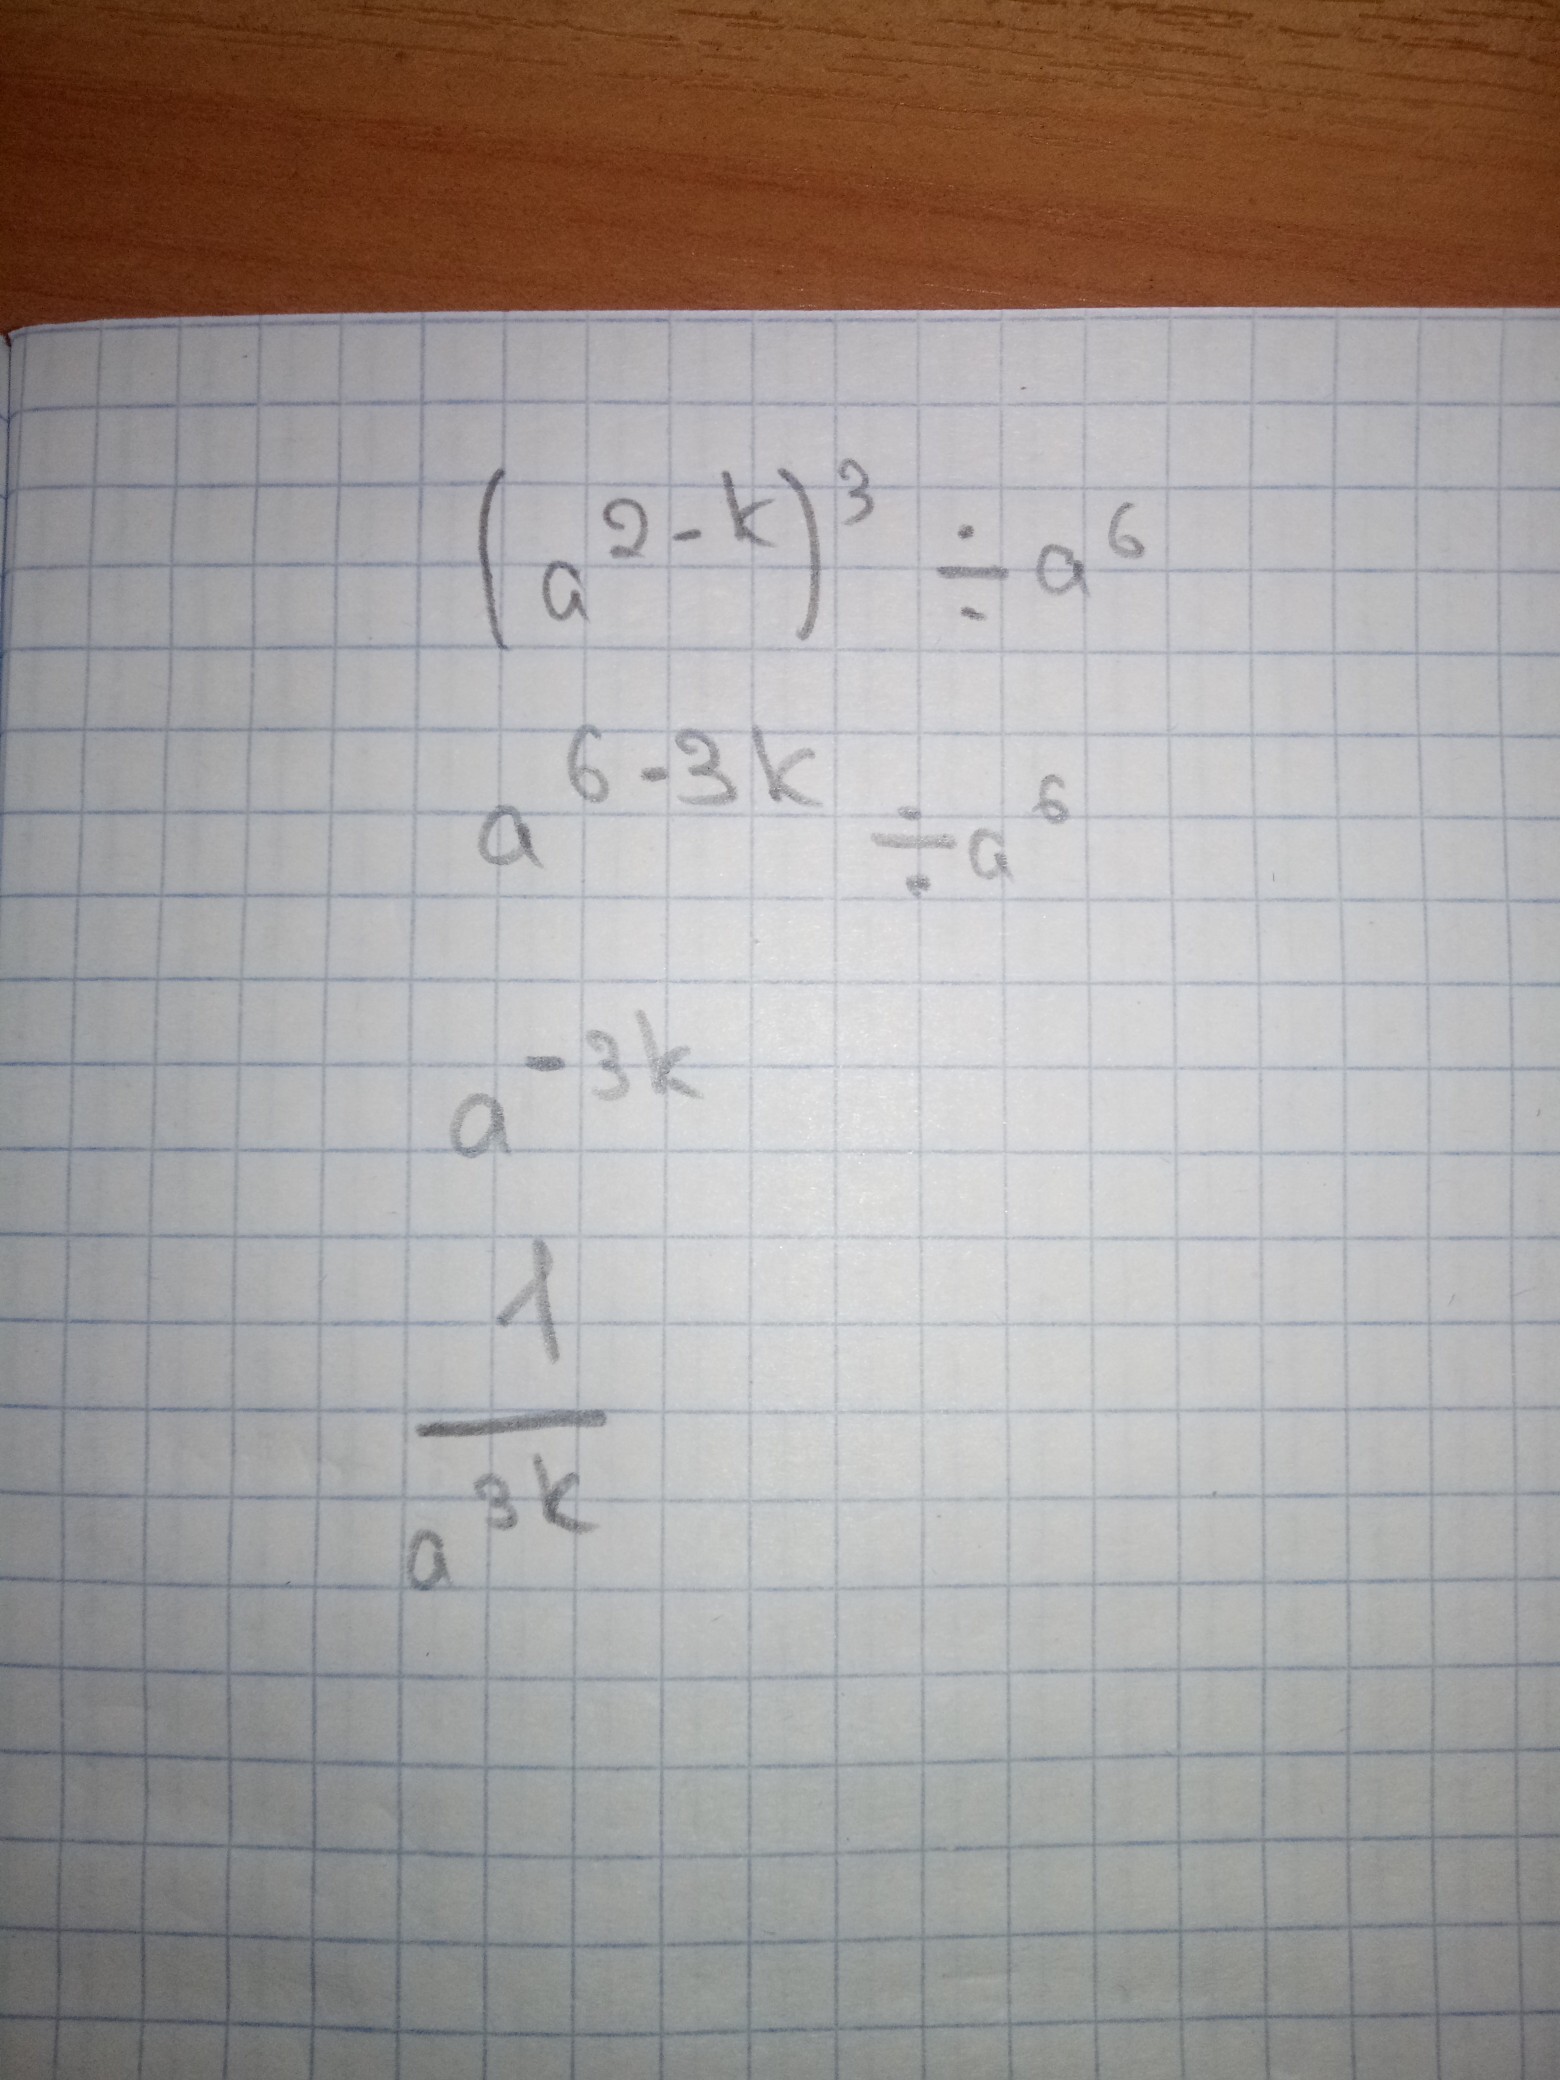 (a^{2-k})^3 ÷ a^6
a^{6-3k} ÷ a^6
a^{-3k}
1
—
a^{3k}